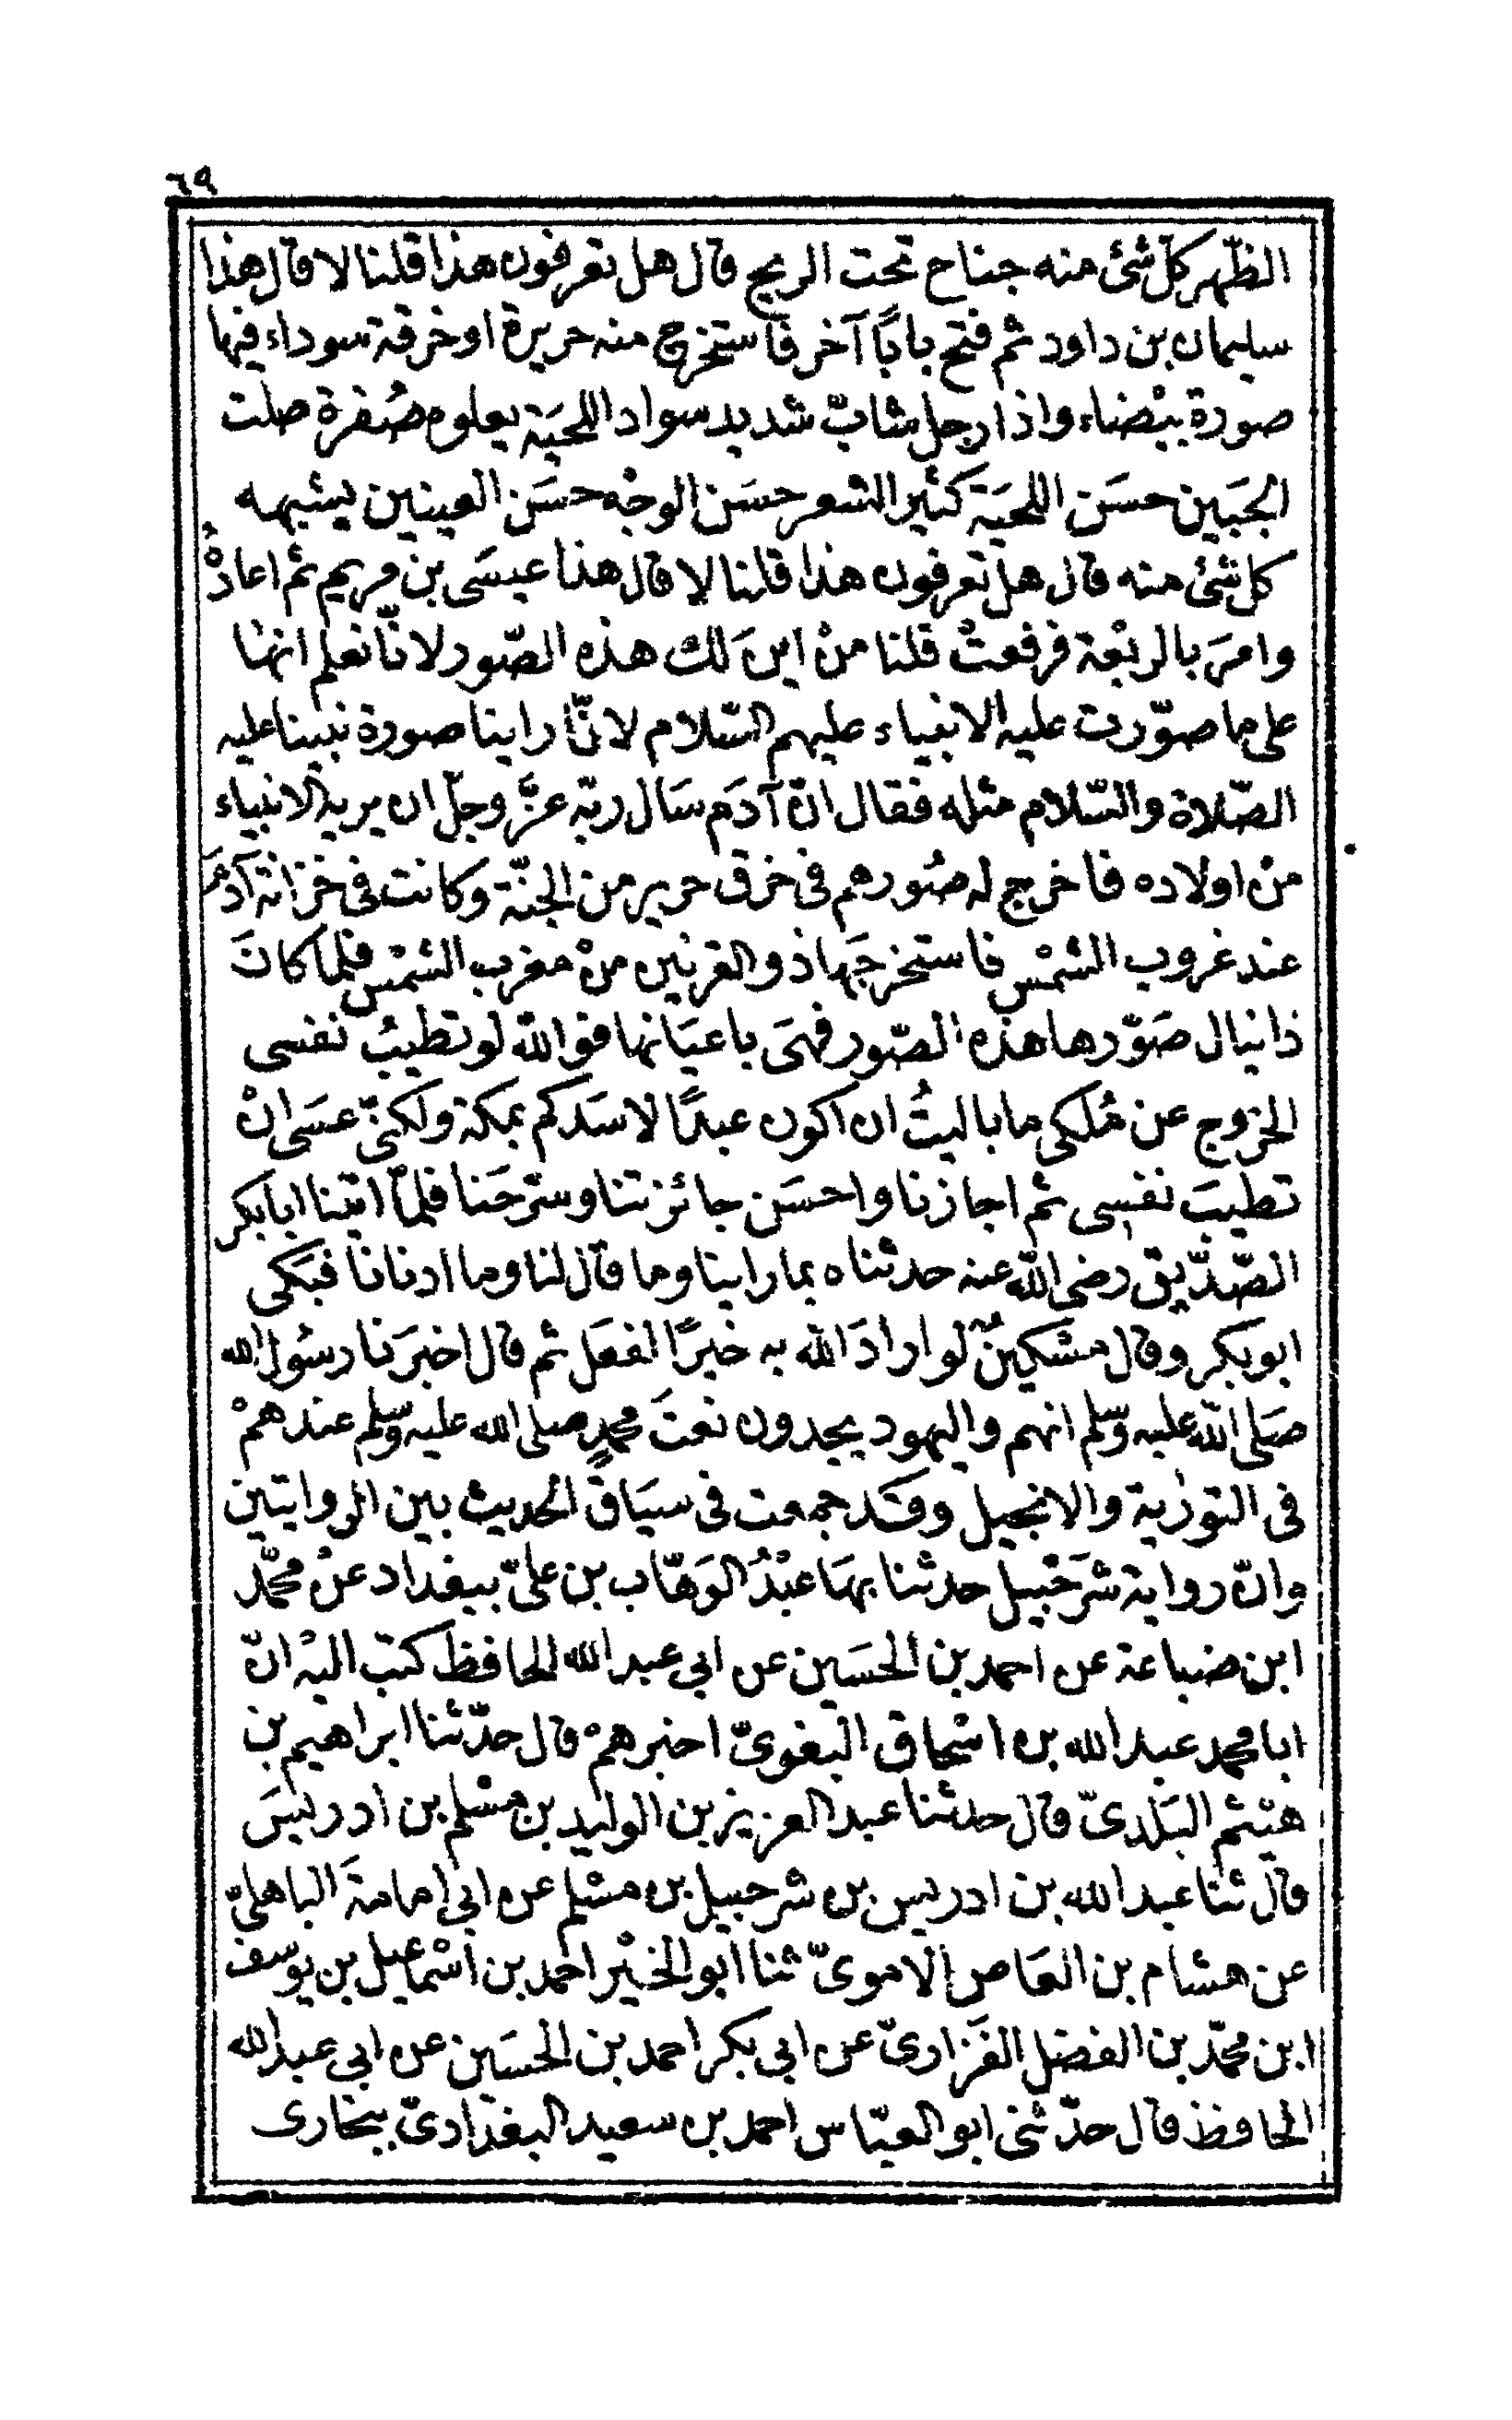 ٦٩
الظّهر كل شئ منه جناح تحت الريح قال هل تعرفون هذا قلنا لا قال هذا
سليمان بن داود ثم فتح بابًا آخر فاستخرج منه حريرة او خرقة سوداء فيها
صورة بيْضاء واذا رجل شابّ شديد سواد اللحيَة يعلوه صُفرة صلت
الجَبين حسَن اللحيَة كثير الشعر حسَن الوجْه حسَن العينين يشبهه
كل شئ منه قال هل تعرفون هذا قلنا لا قال هذا عيسَى بن مريم ثم اعادهُ
وامرَ بالربْعة فرفعتْ قلنا منْ اين لَك هذه الصّور لانّا نعلم انها
على ما صوّرت عليه الانبياء عليهم السّلام لانّا راينا صورة نبينا عليه
الصّلاة والسّلام مثله فقال انّ آدَم سَال ربّه عزَّ وجلّ ان يريه الانبياء
منْ اولاده فاخرج له صُورهم فى خرق حرير من الجنّة وكانت فى خزانة آدمَ
عند غروب الشمْس فاستخرجَها ذو القرنين منْ مغرب الشمْس فلما كانَ
ذانيال صَوّرها هذه الصّور فهىَ باعيَانها فو الله لو تطيبُ نفسى
الخروج عن مُلكى ما باليتُ ان اكون عبدًا لاسَدكم بمكة ولكنّى عسَى انْ
تطيبَ نفسى ثم اجازنا واحسَن جائزتنا وسرّحَنا فلمّا اتينا ابا بكر
الصّدّيق رضى الله عنه حدثناه بما راينا وما قال لنا وما ادنانا فبَكى
ابو بكر وقال مسْكينٌ لو ارادَ الله به خيرًا لفعَل ثم قال اخبرَنا رسُول الله
صَلى الله عليه وسلم انهم واليهود يجدون نعتَ محمدٍ صلى الله عليه وسلم عندهمْ
فى التورٰية والانجيل وقَد جمعت فى سيَاق الحديث بين الروايتين
وانّ رواية شرَحْبيل حدثنا بهَا عبْدُ الوَهّاب بن علىّ ببغداد عنْ محمّد
ابن ضباعة عن احمد بن الحسَين عن ابى عبد الله الحافظ كتب اليْه انّ
ابا محمد عبد الله بن اسْحاق البغوىّ اخبرهمْ قال حدّثنا ابراهيم بن
هيْثم البَلدىّ قال حدثنا عبد العزيز بن الوليد بن مسْلم بن ادريسَ
قال ثنا عبد الله بن ادريس بن شرحبيل بن مسْلم عن ابى امامةَ الباهلىّ
عن هشام بن العَاص الاموىّ ثنا ابو الخيْر احمد بن اسْماعيل بن يوسف
ابن محمّد بن الفضل الفَزارىّ عن ابى بكر احمد بن الحسَين عن ابى عبد الله
الحافظ قال حدّثنى ابو العبّاس احمد بن سعيد البغدادىّ ببخارى